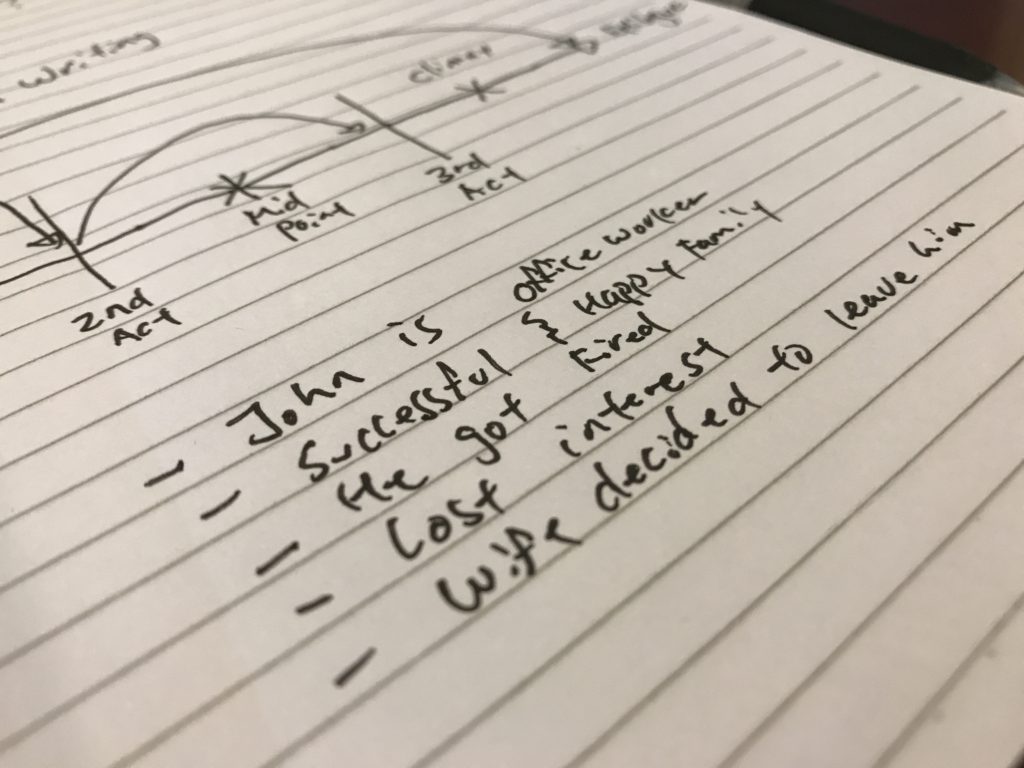 writing
climax
Mid
Point
3rd
Act
2nd
Act
- John is office worker
- Successful & Happy Family
- He got Fired
- Lost interest
- Wife decided to leave him